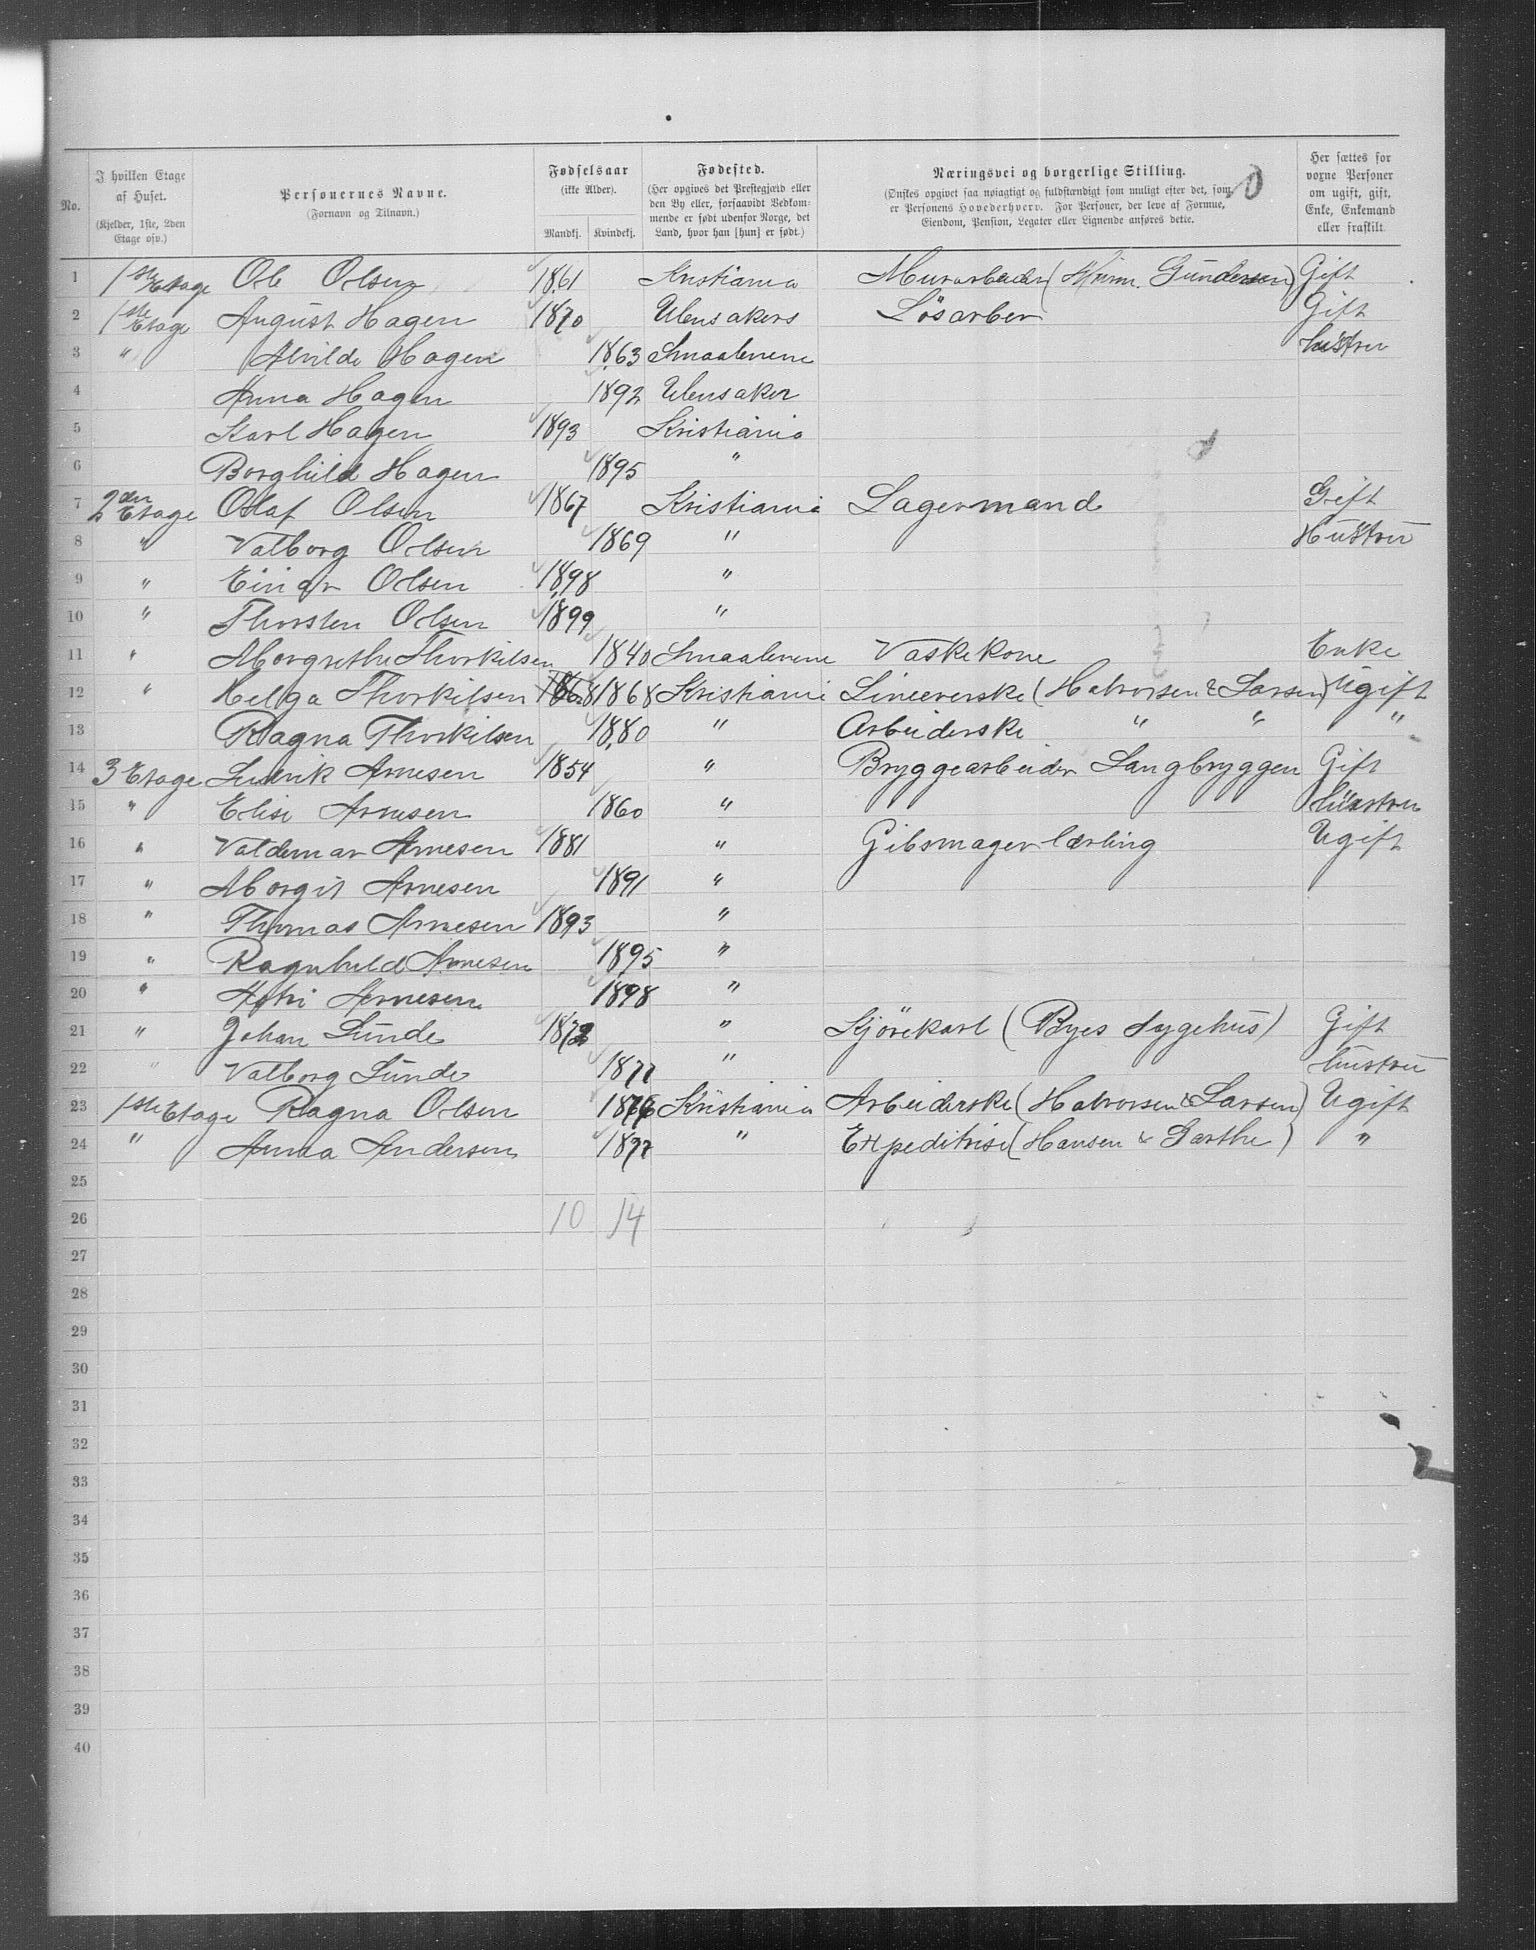 No. | I hvilken Etage af Huset. (Kjelder, 1ste, 2den Etage osv.) | Personernes Navne. (Fornavn og Tilnavn.) | Fødselsaar (ikke Alder). Mandkj. | Kvindekj. | Fødested. (Her opgives det Prestegjæld eller den By eller, forsaavidt Vedkommende er født udenfor Norge, det Land, hvor han [hun] er født.) | Næringsvei og borgerlige Stilling. (Ønskes opgivet saa nøiagtigt og fuldstændigt som muligt efter det, som er Personens Hovederhverv. For Personer, der leve af Formue, Eiendom, Pension, Legater eller Lignende anføres dette. | Her sættes for voxne Personer om ugift, gift, Enke, Enkemand eller fraskilt.
1 1ste Etage Ole Olsen 1861 Kristiania Murarbeider ( Gundersen) Gift
2 1ste Etage August Hagen 1870 Ulensakers Lösarber Gift
3 " Alvilde Hagen 1863 Smaalenene hustru
4 Anna Hagen 1892 Ulensaker
5 Karl Hagen 1893 Kristiania
6 Borghild Hagen 1895 "
7 2den Etage Olaf Olsen 1867 Kristiania Lagermand Gift
8 " Valborg Olsen 1869 " Hustru
9 " Einar Olsen 1898 "
10 " Thorsten Olsen 1899 "
11 " Margrethe Thorkilsen 1840 Smaalenene Vaskekone Enke
12 " Helga Thorkilsen 1868 1868 Kristiania Linererske (Halvorsen & Larsen) Ugift
13 Ragna Thorkilsen 1880 " Arbeiderske " " "
14 3 Etage Ludvik Arnesen 1854 " Bryggearbeider Langbryggen Gift
15 " Elise Arnesen 1860 " hustru
16 " Valdemar Arnesen 1881 " Gibsmager lærling Ugift
17 " Margit Arnesen 1891 "
18 " Thomas Arnesen 1893 "
19 " Ragnhild Arnesen 1895 "
20 " Astri Arnesen 1898 "
21 " Johan Lunde 1872 " Kjörekarl (Byes Sygehus) Gift
22 " Valborg Lunde 1877 " hustru
23 1ste Etage Ragna Olsen 1876 Kristiania Arbeiderske (Halvorsen & Larsen) Ugift
24 " Anna Andersen 1877 " Expeditrise (Hansen & Garthe) "
25
26 10 14
27
28
29
30
31
32
33
34
35
36
37
38
39
40